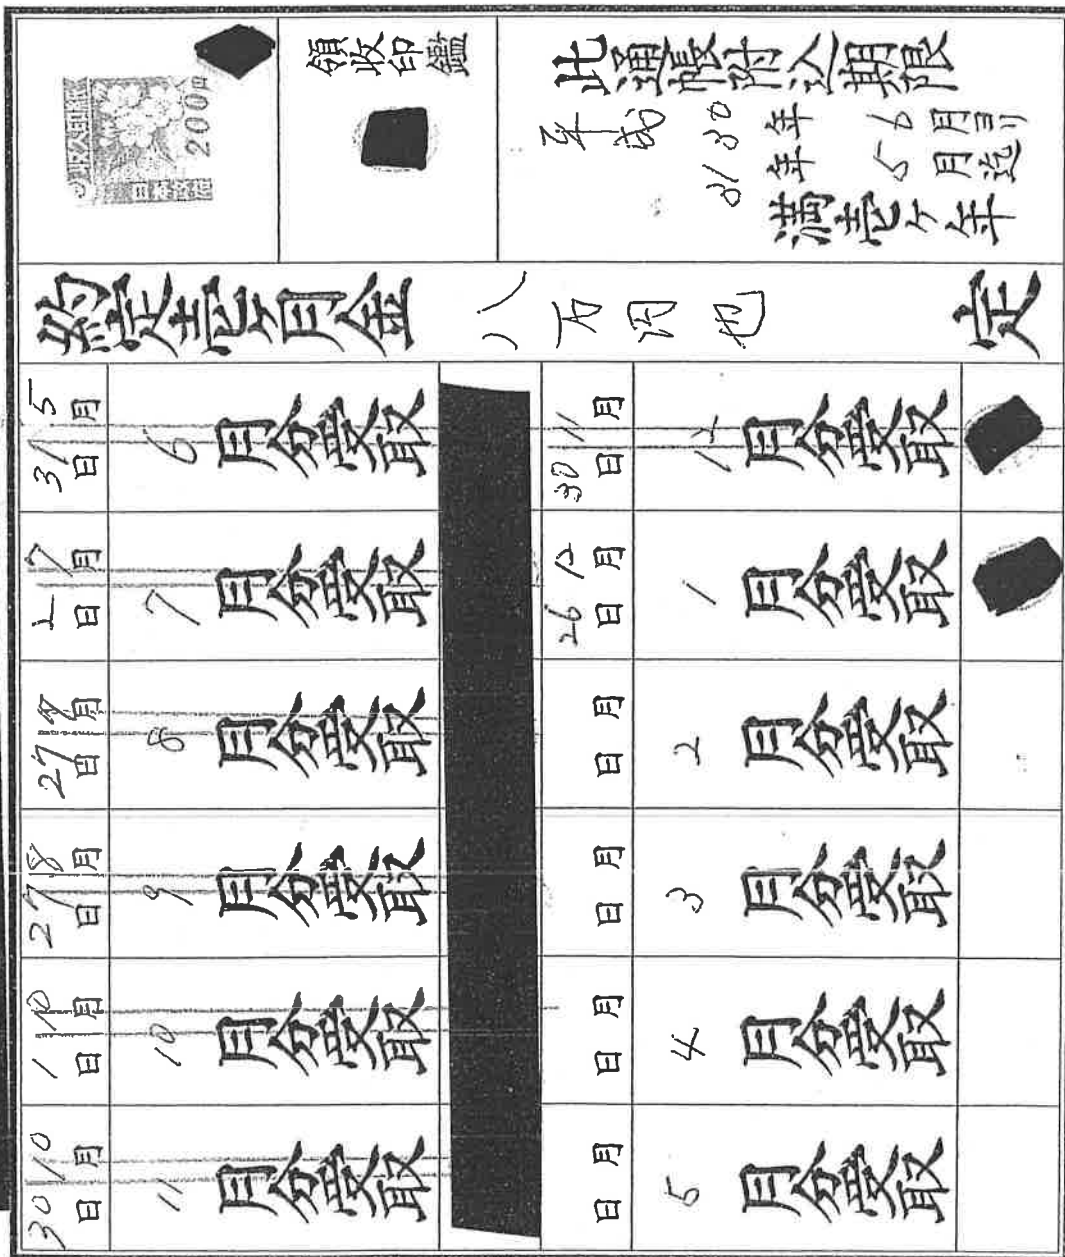 此通帳附込期限
平成 30年 6月ヨリ
31年 5月迄
満壱ヶ年
領收印鑑
収入印紙
200円
日本政府
約定壱ヶ月金 八万円也 定
5月31日 6月分受取
7月2日 7月分受取
27日 8月分受取
8月27日 9月分受取
10月1日 10月分受取
10月30日 11月分受取
11月30日 12月分受取
12月26日 1月分受取
月 日 2月分受取
月 日 3月分受取
月 日 4月分受取
月 日 5月分受取